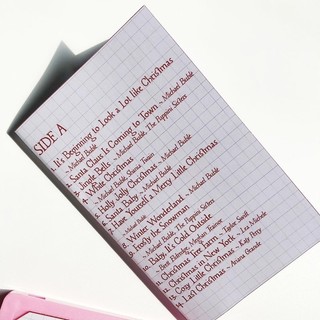 SIDE A
1. It's Beginning to Look a Lot like Christmas
~ Michael Bublé
2. Santa Claus Is Coming to Town ~ Michael Bublé
3. Jingle Bells ~ Michael Bublé, The Puppini Sisters
4. White Christmas
~ Michael Bublé, Shania Twain
5. Holly Jolly Christmas ~ Michael Bublé
6. Santa Baby ~ Michael Bublé
7. Have Yourself a Merry Little Christmas
~ Michael Bublé
8. Winter Wonderland ~ Michael Bublé
9. Frosty the Snowman
~ Michael Bublé, The Puppini Sisters
10. Baby, It's Cold Outside
~ Brett Eldredge, Meghan Trainor
11. Christmas Tree Farm ~ Taylor Swift
12. Christmas in New York ~ Lea Michele
13. Cozy Little Christmas ~ Katy Perry
14. Last Christmas ~ Ariana Grande